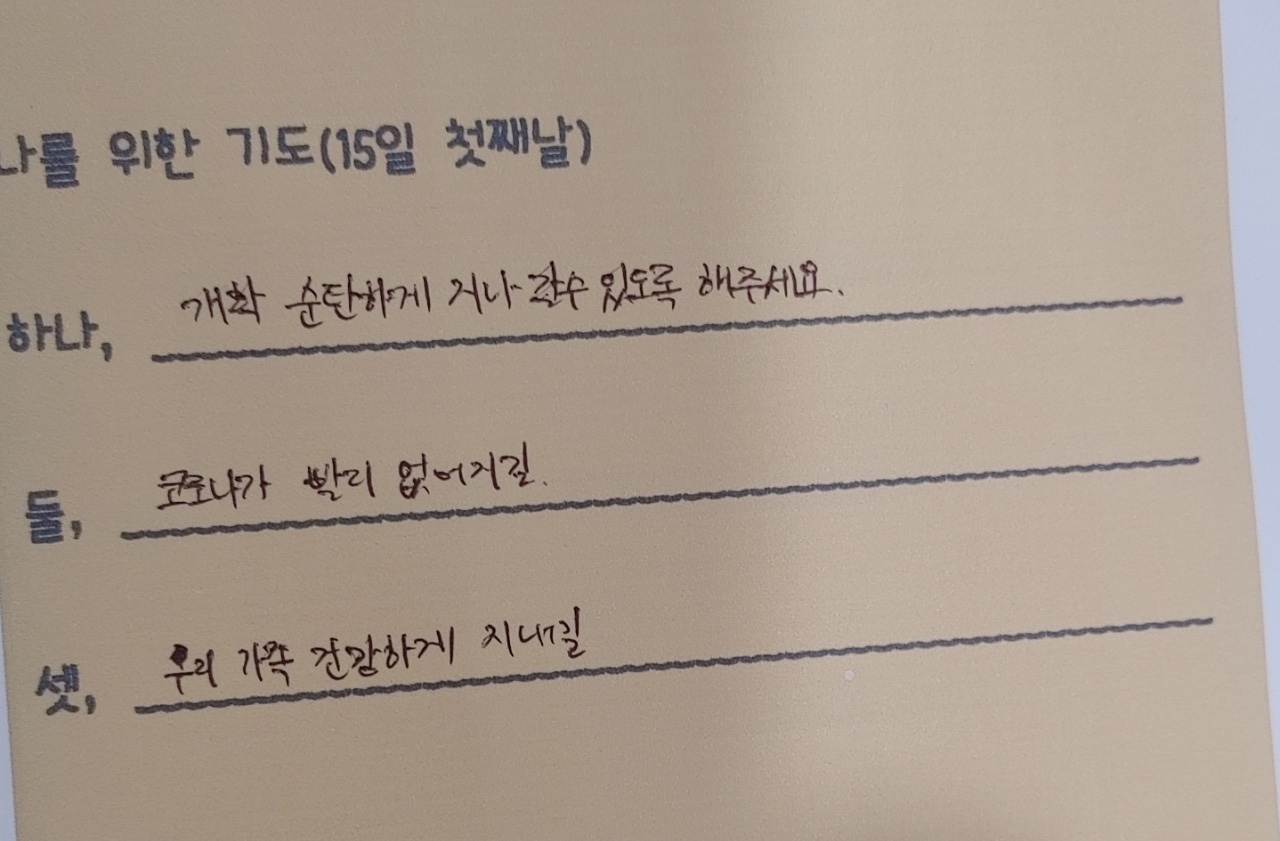 나를 위한 기도(15일 첫째날)
하나, 개학 순탄하게 지나갈수 있도록 해주세요.
둘, 코로나가 빨리 없어지길.
셋, 우리 가족 건강하게 지내길